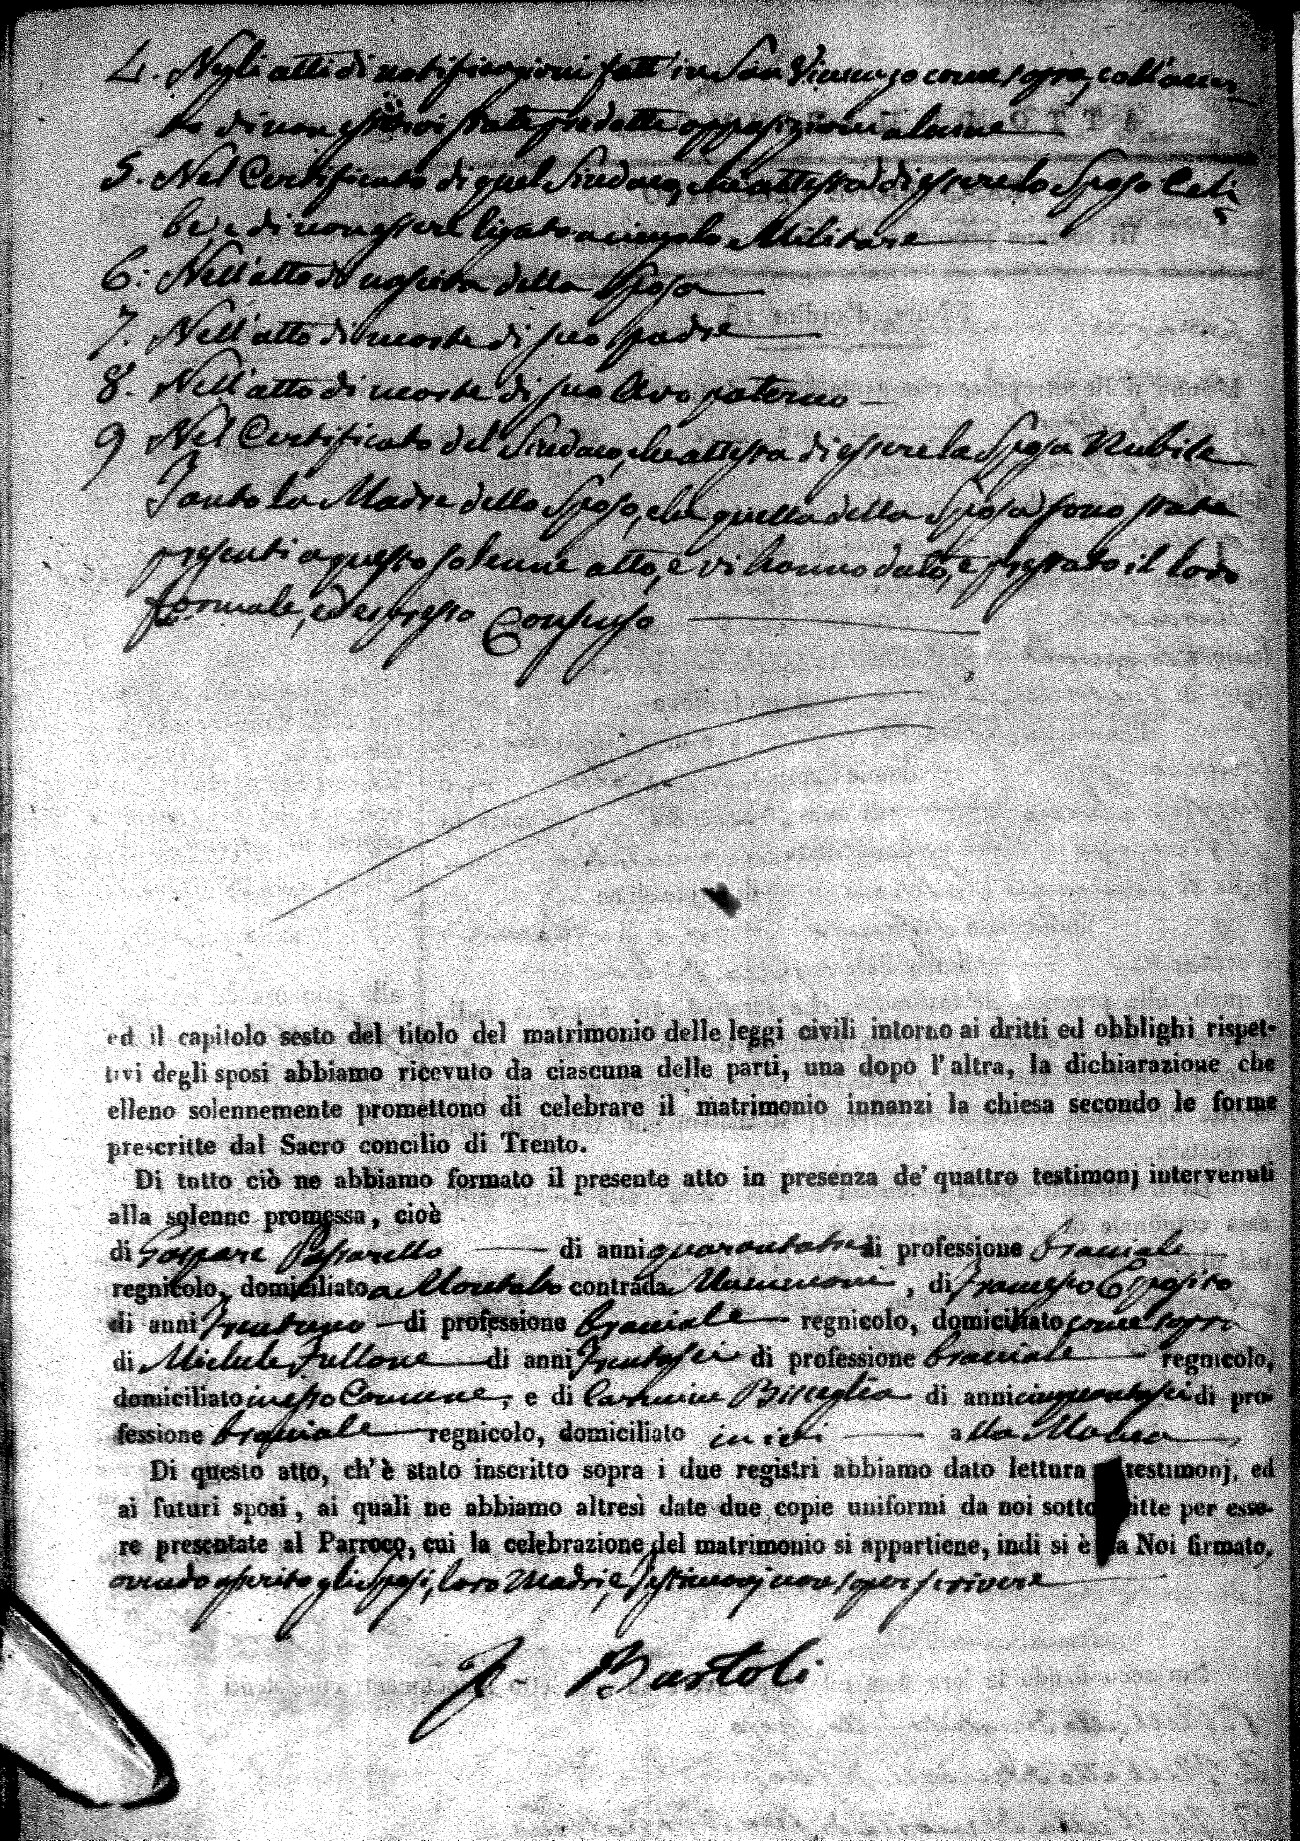 4. Negli atti di notificazioni fatte in San Vincenzo come sopra, coll'anno
to di non esservi state predette opposizioni alcune
5. Nel Certificato di quel Sindaco, che attesta di essere lo Sposo Celi
be, e di non essere ligato a vincolo Militare
6. Nell'atto di nascita della Sposa
7. Nell'atto di morte di suo padre
8. Nell'atto di morte di suo Avo paterno
9 Nel Certificato del Sindaco, che attesta di essere la Sposa Nubile
Tanto la Madre dello Sposo, che quella della Sposa sono state
presenti a questo solenne atto, e vi hanno dato, e prestato il loro
formale, ed espresso Consenso
ed il capitolo sesto del titolo del matrimonio delle leggi civili intorno ai dritti ed obblighi rispet-
tivi degli sposi abbiamo ricevuto da ciascuna delle parti, una dopo l'altra, la dichiarazione che
elleno solennemente promettono di celebrare il matrimonio innanzi la chiesa secondo le forme
prescritte dal Sacro concilio di Trento.
Di tutto ciò ne abbiamo formato il presente atto in presenza de' quattro testimonj intervenuti
alla solenne promessa, cioè
di Gaspare Passarello di anni quarantatre di professione braciale
regnicolo, domiciliato a Montalto contrada , di Francesco Esposito
di anni trentuno di professione braciale regnicolo, domiciliato come sopra
di Michele Fullone di anni trentasei di professione braciale regnicolo,
domiciliato in esso Comune, e di Carmine Bisceglia di anni cinquantasei di pro-
fessione braciale regnicolo, domiciliato in ivi alla
Di questo atto, ch'è stato inscritto sopra i due registri abbiamo dato lettura testimonj, ed
ai futuri sposi, ai quali ne abbiamo altresì date due copie uniformi da noi sottoscritte per esse-
re presentate al Parroco, cui la celebrazione del matrimonio si appartiene, indi si è da Noi firmato,
avendo asserito gli Sposi, loro Madri, e Testimonj non saper scrivere
F. Bartoli